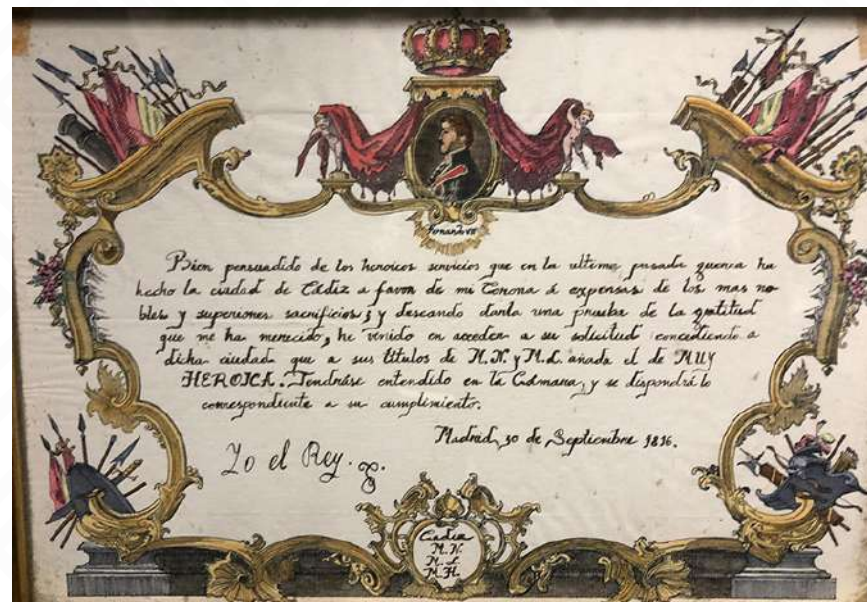 Fernando VII
Bien persuadido de los heroicos servicios que en la ultima pasada guerra ha
hecho la ciudad de Cádiz a favor de mi Corona á expensas de los mas no
bles y superiores sacrificios; y deseando darla una prueba de la gratitud
que me ha merecido, he venido en acceder a su solicitud concediendo a
dicha ciudad que a sus títulos de M.N. y M.L. añada el de MUY
HEROICA. Tendráse entendido en la Cámara, y se dispondrá lo
correspondiente a su cumplimiento.
Madrid, 30 de Septiembre 1816.
Yo el Rey.
Cadiz
M.N.
M.L.
M.H.